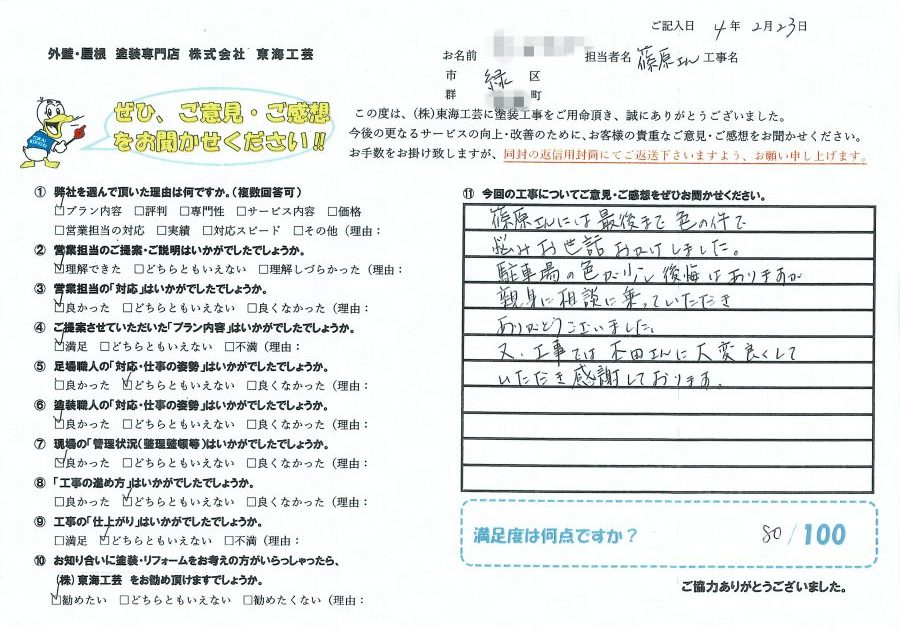 ご記入日 4 年 2月 23日
外壁・屋根 塗装専門店 株式会社 東海工芸
お名前 担当者名 篠原さん 工事名
市 緑 区
郡 町
ぜひ、ご意見・ご感想
をお聞かせください!!
この度は、(株)東海工芸に塗装工事をご用命頂き、誠にありがとうございました。
今後の更なるサービスの向上・改善のために、お客様の貴重なご意見・ご感想をお聞かせください。
お手数をお掛け致しますが、同封の返信用封筒にてご返送下さいますよう、お願い申し上げます。
① 弊社を選んで頂いた理由は何ですか。(複数回答可)
☑プラン内容 □評判 □専門性 □サービス内容 □価格
□営業担当の対応 □実績 □対応スピード □その他(理由:
② 営業担当のご提案・ご説明はいかがでしたでしょうか。
☑理解できた □どちらともいえない □理解しづらかった(理由:
③ 営業担当の「対応」はいかがでしたでしょうか。
☑良かった □どちらともいえない □良くなかった(理由:
④ ご提案させていただいた「プラン内容」はいかがでしたでしょうか。
☑満足 □どちらともいえない □不満(理由:
⑤ 足場職人の「対応・仕事の姿勢」はいかがでしたでしょうか。
□良かった ☑どちらともいえない □良くなかった(理由:
⑥ 塗装職人の「対応・仕事の姿勢」はいかがでしたでしょうか。
☑良かった □どちらともいえない □良くなかった(理由:
⑦ 現場の「管理状況(整理整頓等)はいかがでしたでしょうか。
☑良かった □どちらともいえない □良くなかった(理由:
⑧ 「工事の進め方」はいかがでしたでしょうか。
□良かった ☑どちらともいえない □良くなかった(理由:
⑨ 工事の「仕上がり」はいかがでしたでしょうか。
□満足 ☑どちらともいえない □不満(理由:
⑩ お知り合いに塗装・リフォームをお考えの方がいらっしゃったら、
(株)東海工芸 をお勧め頂けますでしょうか。
☑勧めたい □どちらともいえない □勧めたくない(理由:
⑪ 今回の工事についてご意見・ご感想をぜひお聞かせください。
篠原さんには最後まで色の件で
悩みお世話おかけしました。
駐車場の色が少し後悔はありますが
親身に相談に乗っていただき
ありがとうございました。
又、工事では 田さんに大変良くして
いただき感謝しております。
満足度は何点ですか? 80/100
ご協力ありがとうございました。